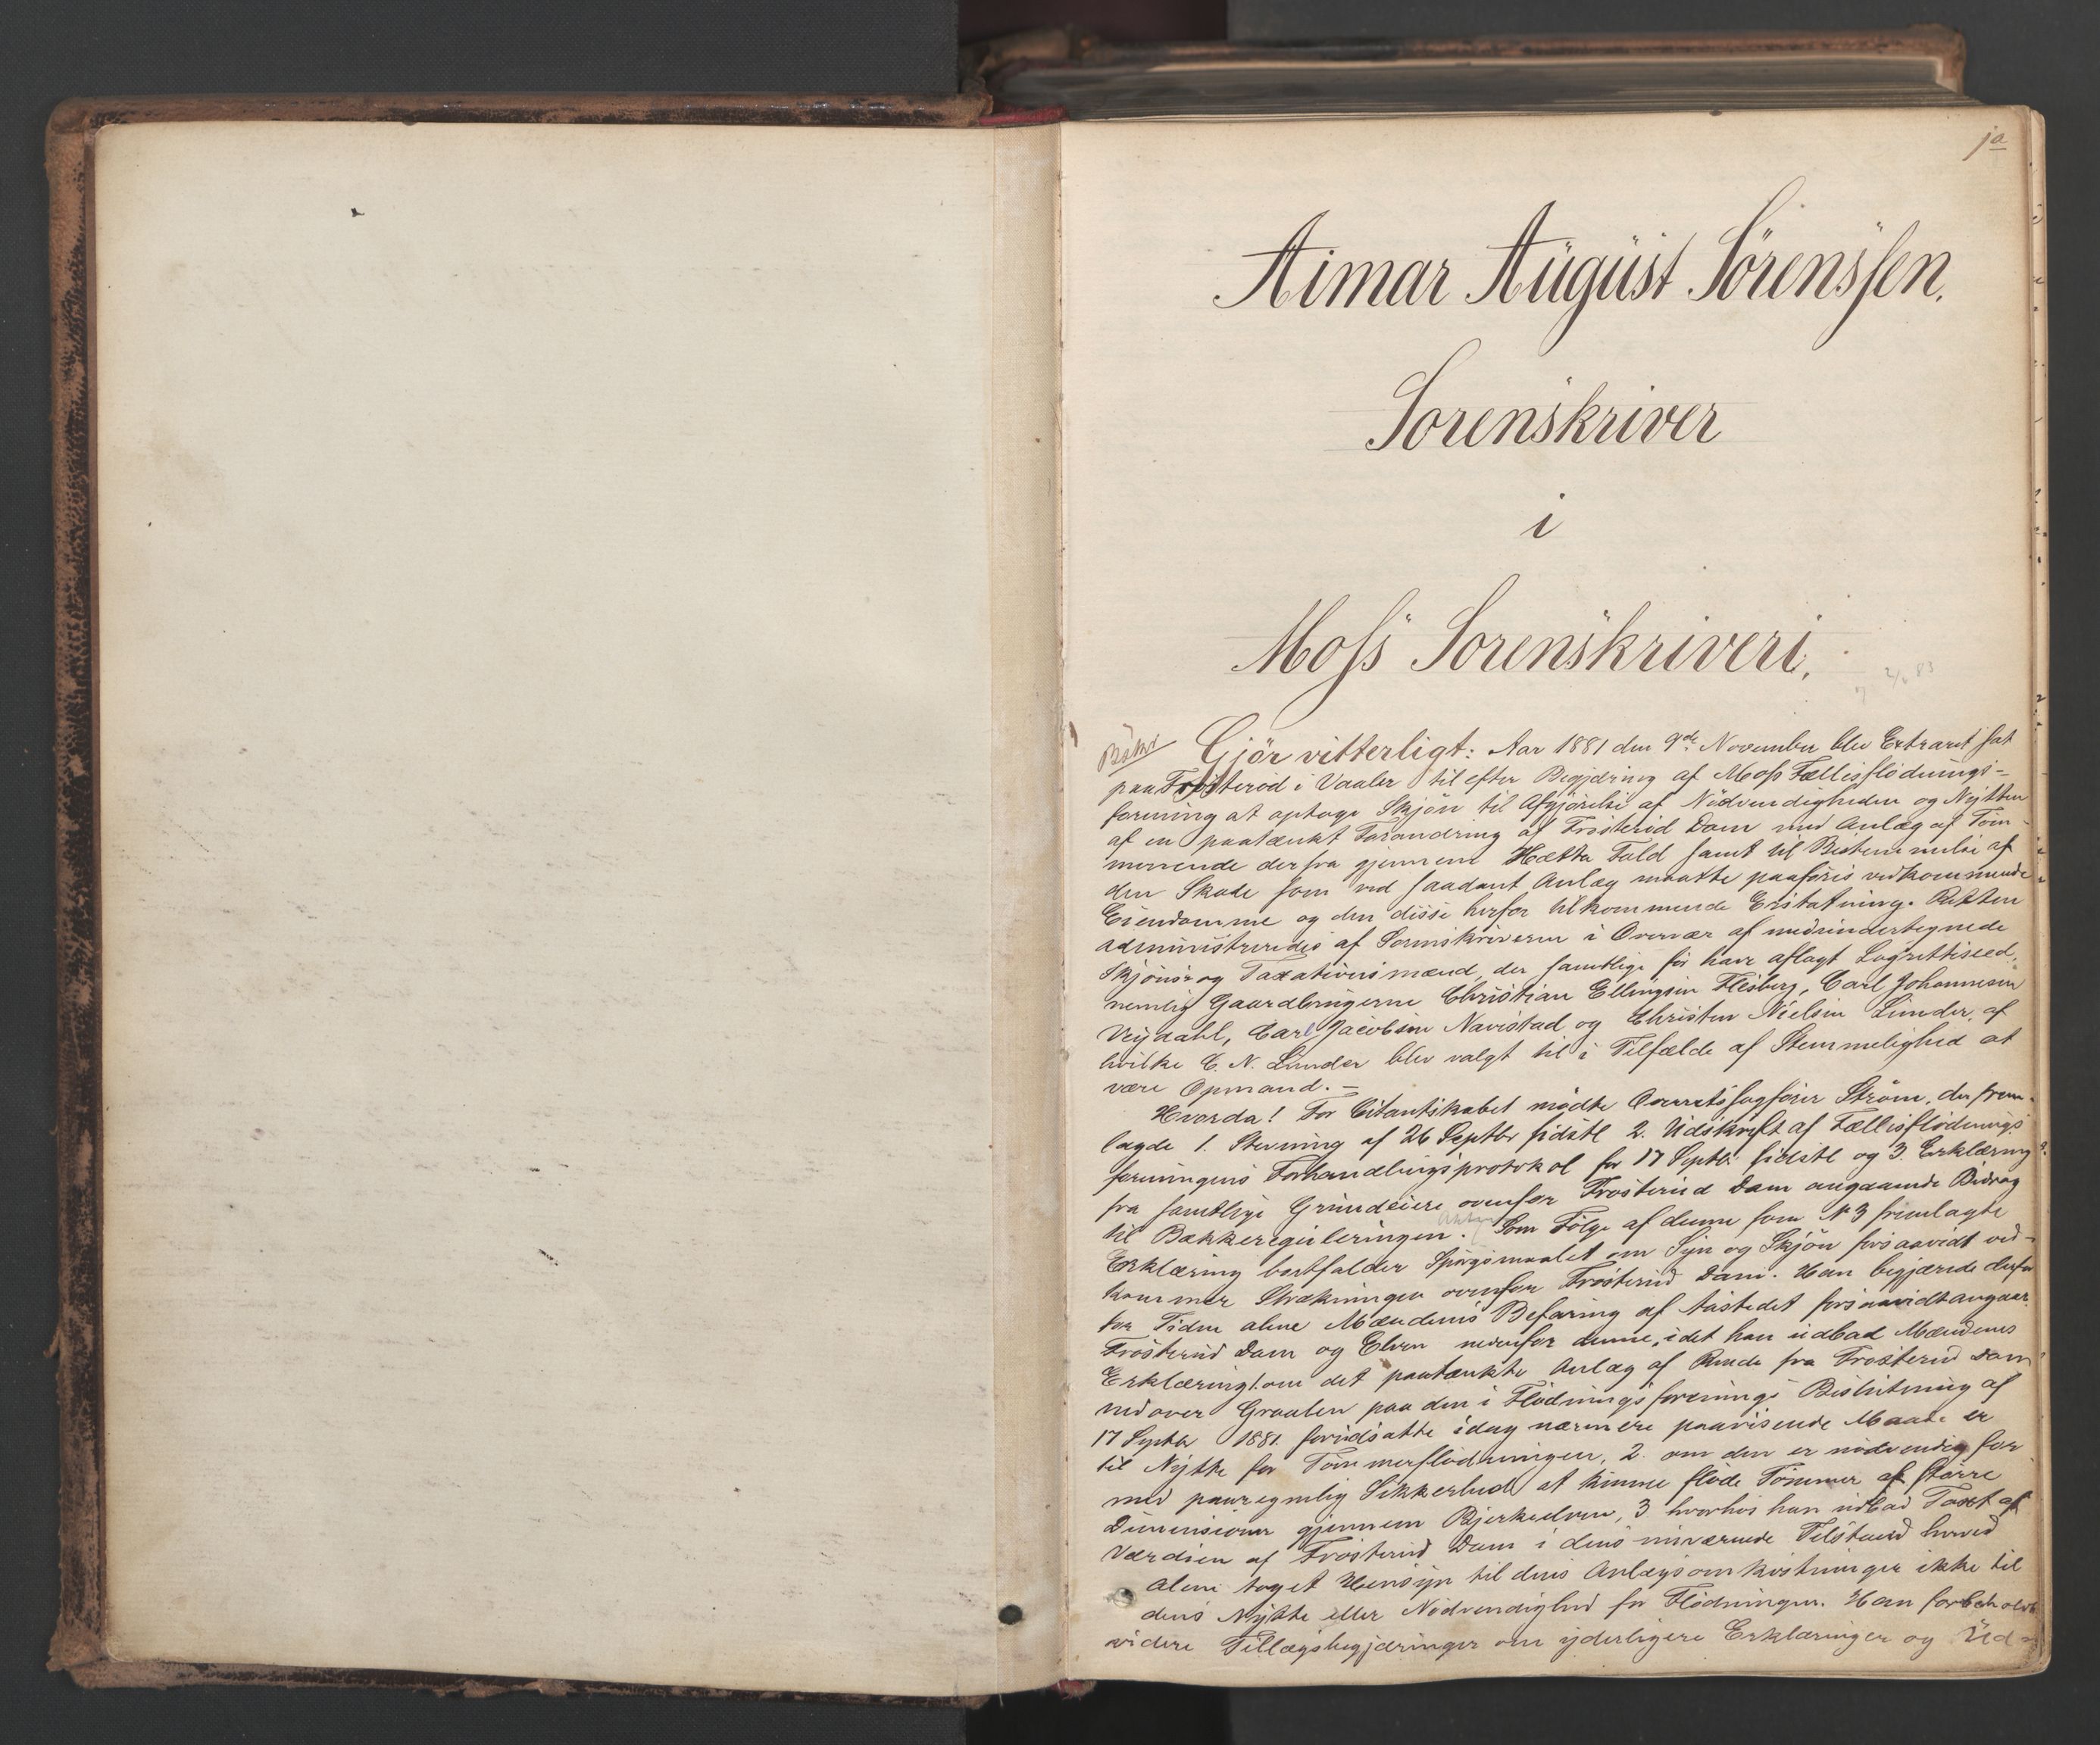 1a
Aimar August Sörenssen.
Sorenskriver
i
Moss Sorenskriveri.
2/6 83
Gjör vitterligt: Aar 1881 den 9de November blev Extraret sat
paa Frösterød i Vaaler til efter Begjæring af Moss Fællesflödnings-
forening at optage Skjön til Afgjörelse af Nödvendigheden og Nytten
af en paatænkt Forandring af Frösterød Dam med Anlæg af Töm-
merrende derfra gjennem Hætta Fald samt til Bestemmelse af
den Skade som ved saadant Anlæg maatte paaföres vedkommende
Eiendomme og den disse herfor tilkommende Erstatning. Retten
administreredes af Sorenskriveren i Overvær af medundertegnede
Skjöns og Taxationsmænd, der samtlige för have aflagt Lagrettiseed,
nemlig Gaardbrugerne Christian Ellingsen Flesberg, Carl Johannesen
Vejdahl, Carl Jacobsen Navestad og Christen Nielsen Lunder, af
hvilke C. N. Lunder blev valgt til i Tilfælde af Stemmelighed at
være Opmand. -
Hvorda! For Citantskabet mödte Overretssagförer Ström, der frem-
lagde 1. Stevning af 26 Septbr sidstl 2. Udskrift af Fællesflödnings
foreningens Forhandlingsprotokol for 17 Septbr sidstl og 3. Erklæring
fra samtlige Grundeiere ovenfor Frösterud Dam angaaende Bidrag
til Bækkereguleringen. Som Fölge af denne som No 3 fremlagte
Erklæring bortfalder Spörgsmaalet om Syn og Skjön forsaavidt ved-
kommer Strækningen ovenfor Frösterud Dam. Han begjærede derfor
for Tiden alene Mændenes Befaring af Aastedet forsaavidt angaar
Frösterud Dam og Elven nedenfor denne, idet han udbad Mændenes
Erklæring 1. om det paatænkte Anlæg af Rende fra Frösterud Dam
nedover Graalen paa den i Flödningsforenings Beslutning af
17 Septbr 1881 forudsatte idag nærmere paavisende Maade er
til Nytte for Tömmerflödningen, 2. om den er nödvendig for
med paaregnelig Sikkerhed at kunne flöde Tömmer af större
Dimensioner gjennem Bjerkeelven, 3 hvorhos han udbad Taxt af
Værdien af Frösterud Dam i dens nuværende Tilstand hvorved
alene toget Hensyn til dens Anlægsomkostninger ikke til
dens Nytte eller Nödvendighed for Flödningen. Han forbeholdt
videre Tillægsbegjæringer om yderligere Erklæringer og Ud-